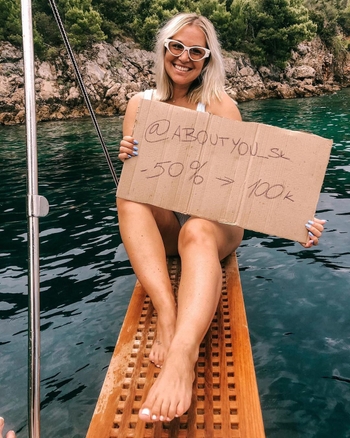 @ABOUTYOU_SK
-50% → 100k